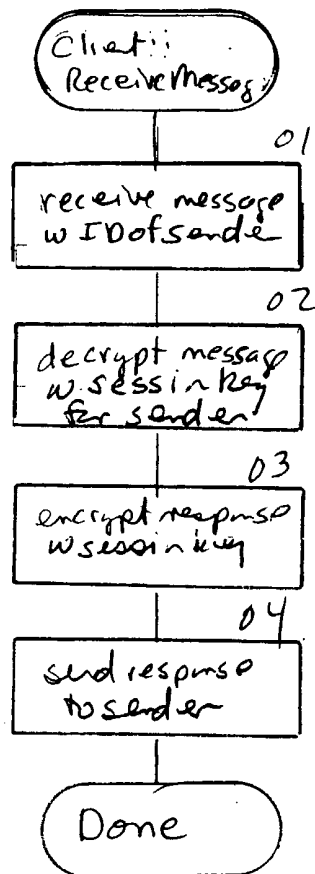 Client::
ReceiveMessag
01
receive message
w IDofsender
02
decrypt message
w sessin key
for sender
03
encrypt response
w sessin key
04
send response
to sender
Done